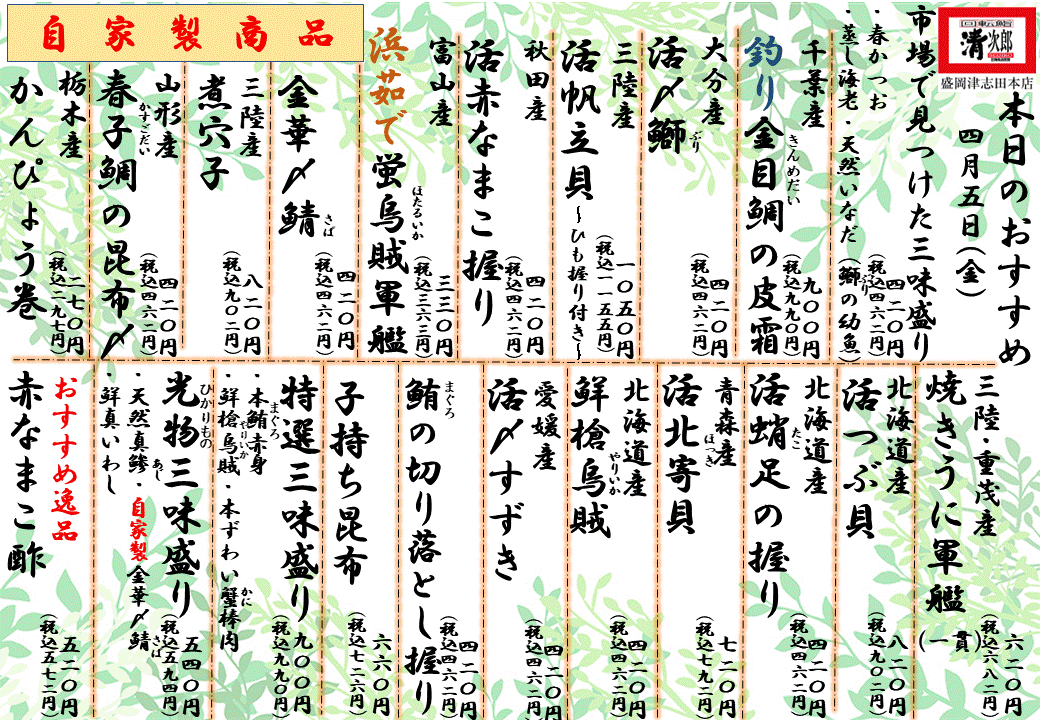 回転鮨
清次郎
盛岡津志田本店
本日のおすすめ
四月五日(金)
市場で見つけた三味盛り
・春かつお
・蒸し海老・天然いなだ(鰤の幼魚)
ぶり
四二〇円
(税込四六二円)
千葉産
釣り金目鯛の皮霜
きんめだい
九〇〇円
(税込九九〇円)
大分産
活〆鰤
ぶり
四二〇円
(税込四六二円)
三陸産
活帆立貝~ひも握り付き~
一〇五〇円
(税込一一五五円)
秋田産
活赤なまこ握り
四二〇円
(税込四六二円)
富山産
浜茹で蛍烏賊軍艦
ほたるいか
三三〇円
(税込三六三円)
自家製商品
金華〆鯖
さば
四二〇円
(税込四六二円)
三陸産
煮穴子
八二〇円
(税込九〇二円)
山形産
春子鯛の昆布〆
かすごだい
四二〇円
(税込四六二円)
栃木産
かんぴょう巻
二七〇円
(税込二九七円)
三陸・重茂産
焼きうに軍艦(一貫)
六二〇円
(税込六八二円)
北海道産
活つぶ貝
八二〇円
(税込九〇二円)
北海道産
活蛸足の握り
たこ
四二〇円
(税込四六二円)
青森産
活北寄貝
ほっき
七二〇円
(税込七九二円)
北海道産
鮮槍烏賊
やりいか
四二〇円
(税込四六二円)
愛媛産
活〆すずき
四二〇円
(税込四六二円)
鮪の切り落とし握り
まぐろ
四二〇円
(税込四六二円)
子持ち昆布
六六〇円
(税込七二六円)
特選三味盛り
・本鮪赤身
まぐろ
・鮮槍烏賊・本ずわい蟹棒肉
やりいか
かに
九〇〇円
(税込九九〇円)
光物三味盛り
ひかりもの
・天然真鯵・自家製金華〆鯖
あじ
さば
・鮮真いわし
五四〇円
(税込五九四円)
おすすめ逸品
赤なまこ酢
五二〇円
(税込五七二円)